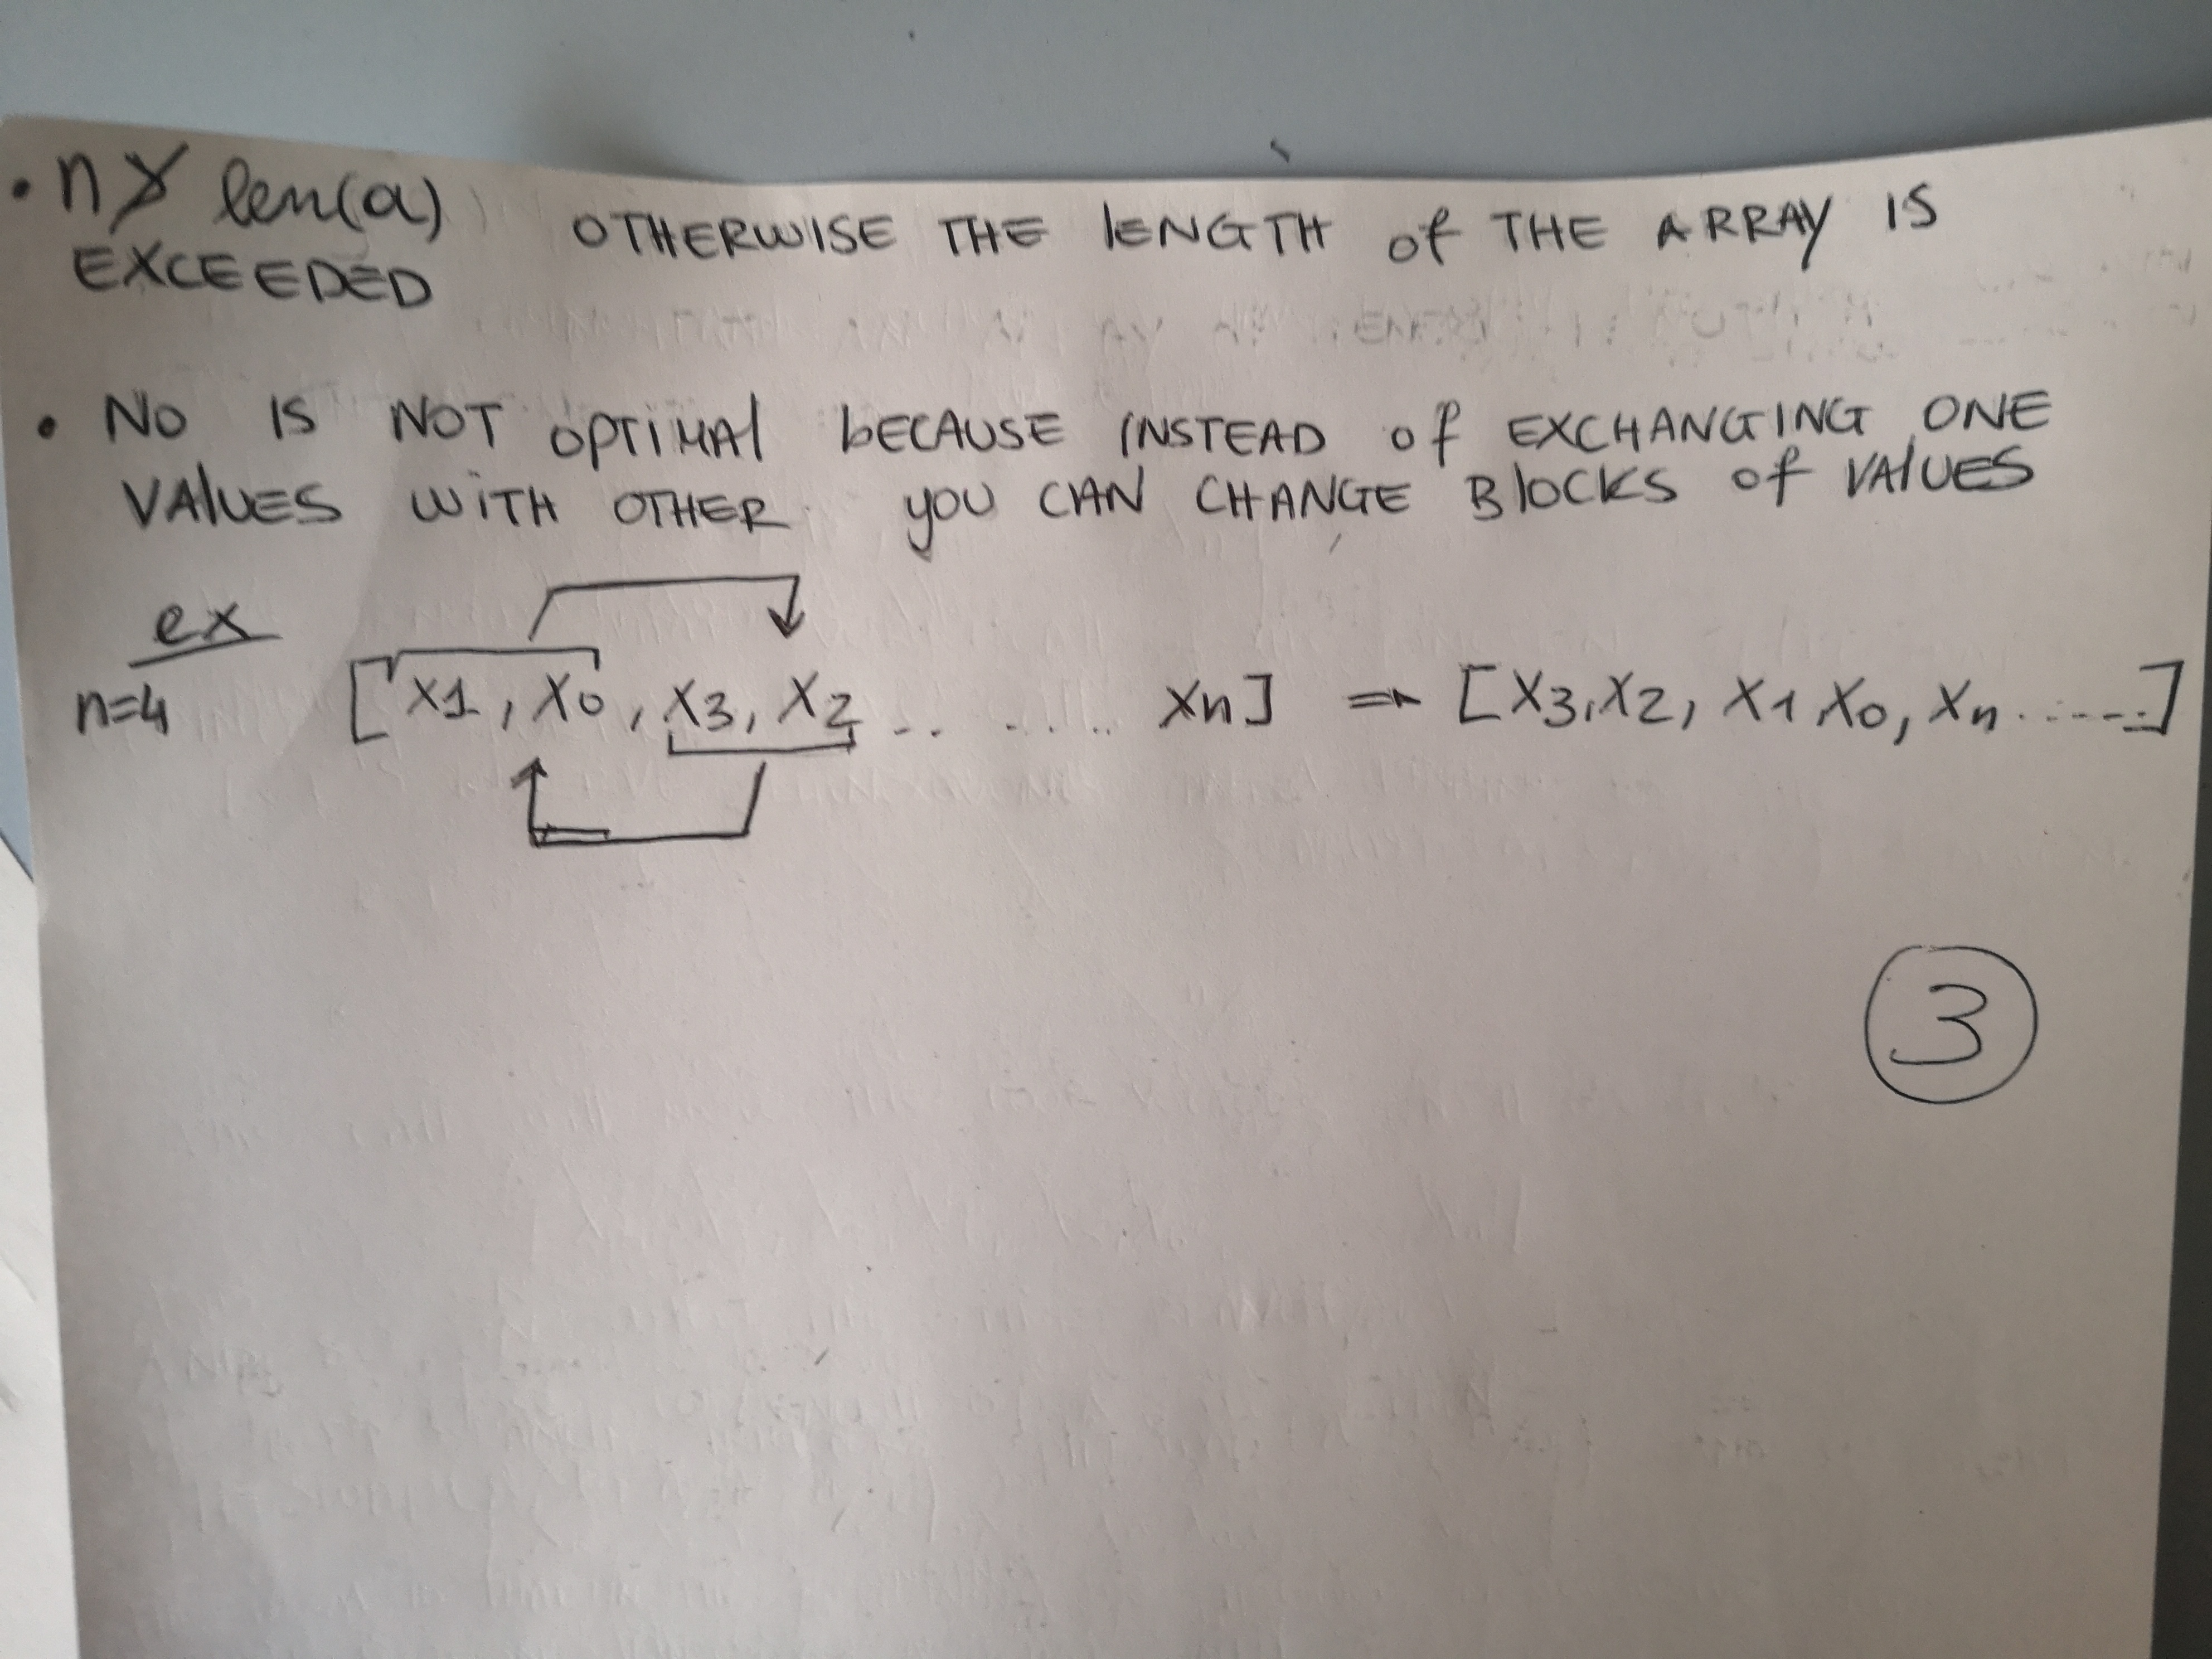 • n ≯ len(a) OTHERWISE THE lENGTH of THE ARRAY IS
EXCEEDED
• No IS NOT OPTIMAl bECAUSE INSTEAD of EXCHANGING ONE
VAlUES WITH OTHER you CAN CHANGE BlOCKS of VAlUES
ex
n=4 [x1, x0, x3, x2 ........ xn] ⇒ [x3, x2, x1, x0, xn ......]
3